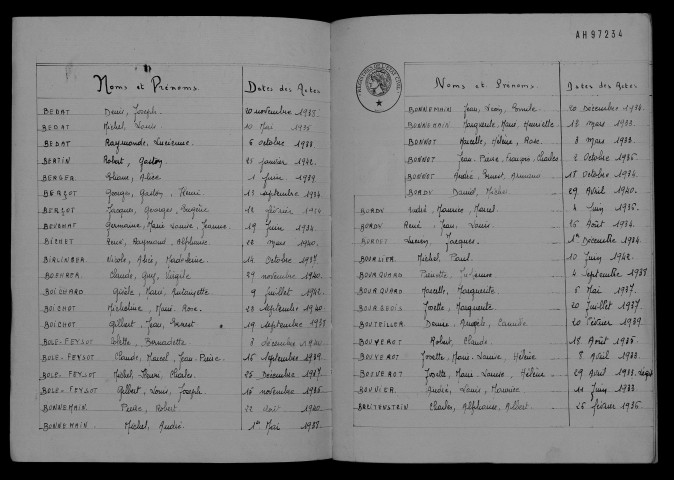 Noms et Prénoms. Dates des Actes
BEDAT Denis, Joseph. 20 novembre 1935.
BEDAT Michel, Louis 10 Mai 1936
BEDAT Raymonde, Lucienne. 6 octobre 1933
BERTIN Robert, Gaston 25 janvier 1942.
BERGER Eliane, Alice 1 juin 1939
BERZOT Georges, Gaston, Henri 13 septembre 1934
BERZOT Jacques, Georges, Eugène 12 février 1934
Germaine, Marie Louise, Jeanne 19 Juin 1934.
BICHET René, Raymond, Alphonse 22 Mars 1940.
BIRLINGER Nicole, Alix, Madeleine. 14 octobre 1937.
BOEHRER Claude, Guy, Virgile 29 novembre 1940.
BOICHARD Gisèle, Marie, Antoinette 9 juillet 1942.
BOICHOT Micheline, Marie, Rose. 23 septembre 1940.
BOICHOT Gilbert, Jean, Ernest 19 septembre 1938
BOLE-FEYSOT Colette, Bernadette 3 décembre 1940
BOLE-FEYSOT Claude, Marcel, Jean-Pierre. 16 septembre 1939.
BOLE-FEYSOT Michel, Henri, Charles. 25 Décembre 1937.
BOLE-FEYSOT Gilbert, Louis, Joseph 16 novembre 1936
BONNEMAIN Pierre, Robert 22 août 1940.
BONNEMAIN Michel, André. 1er Mai 1938.
AH97234
Noms et Prénoms. Dates des Actes
BONNEMAIN Jean, Léon, Emile. 20 Décembre 1934.
BONNEMAIN Marguerite, Marie, Henriette 18 mars 1933.
BONNOT Marcelle, Hélène, Rose. 3 mars 1933.
BONNOT Jean, Pierre, François, Charles 2 Octobre 1936.
BONNOT André, Ernest, Armand 17 Octobre 1934.
BORDY Daniel, Michel 29 Avril 1940.
BORDY André, Maurice, Marcel. 4 Juin 1936.
BORDY René, Jean, Louis. 26 Août 1934.
Lucien, Jacques. 1er Décembre 1934.
BOURLIER Michel, Paul. 10 Juin 1942.
BOURQUARD Pierrette, 4 Septembre 1938
BOURQUARD Marcelle, Marguerite. 6 Mai 1937.
BOURGEOIS Josette, Marguerite 20 Juillet 1937.
BOUTEILLER Denise, Angèle, Camille 20 Février 1939.
BOUVEROT Robert, Claude 18 Août 1935.
BOUVEROT Josette, Marie-Louise, Hélène 8 Avril 1933.
BOUVEROT Josette, Marie-Louise, Hélène 29 Avril 1933.
BOUVIER André, Louis, Maurice. 11 Juin 1933.
BREITENSTEIN Charles, Alphonse, Albert. 26 Février 1936.